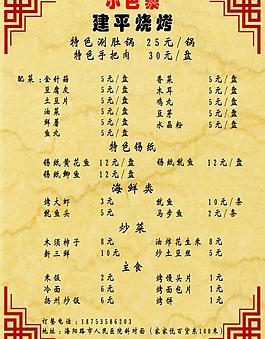 建平烧烤
特色涮肚锅 25元/锅
特色手把肉 30元/盒
配菜：金针菇 5元/盒 香菜 5元/盒
豆腐皮 5元/盒 木耳 5元/盒
土豆片 5元/盒 鸡丸 5元/盒
油菜 5元/盒 豆苗 5元/盒
鲜蘑 5元/盒 水晶粉 5元/盒
鱼丸 5元/盒
特色锡纸
锡纸黄花鱼 12元/盒 锡纸鱿鱼 12元/盒
锡纸鲫鱼 12元/盒
海鲜类
烤大虾 3元/ 鱿鱼 10元/
鱿鱼头 5元/ 马步鱼 2元/条
炒菜
木须柿子 8元 油炸花生米 8元
新三鲜 10元 炒土豆丝 5元
主食
米饭 2元 烤馒头片 1元
冷面 6元 烤面包片 1元
扬州炒饭 6元 烤饼 1元
订餐电话：18753586203
地址：海阳路市人民医院斜对面（家家悦百货东100米）